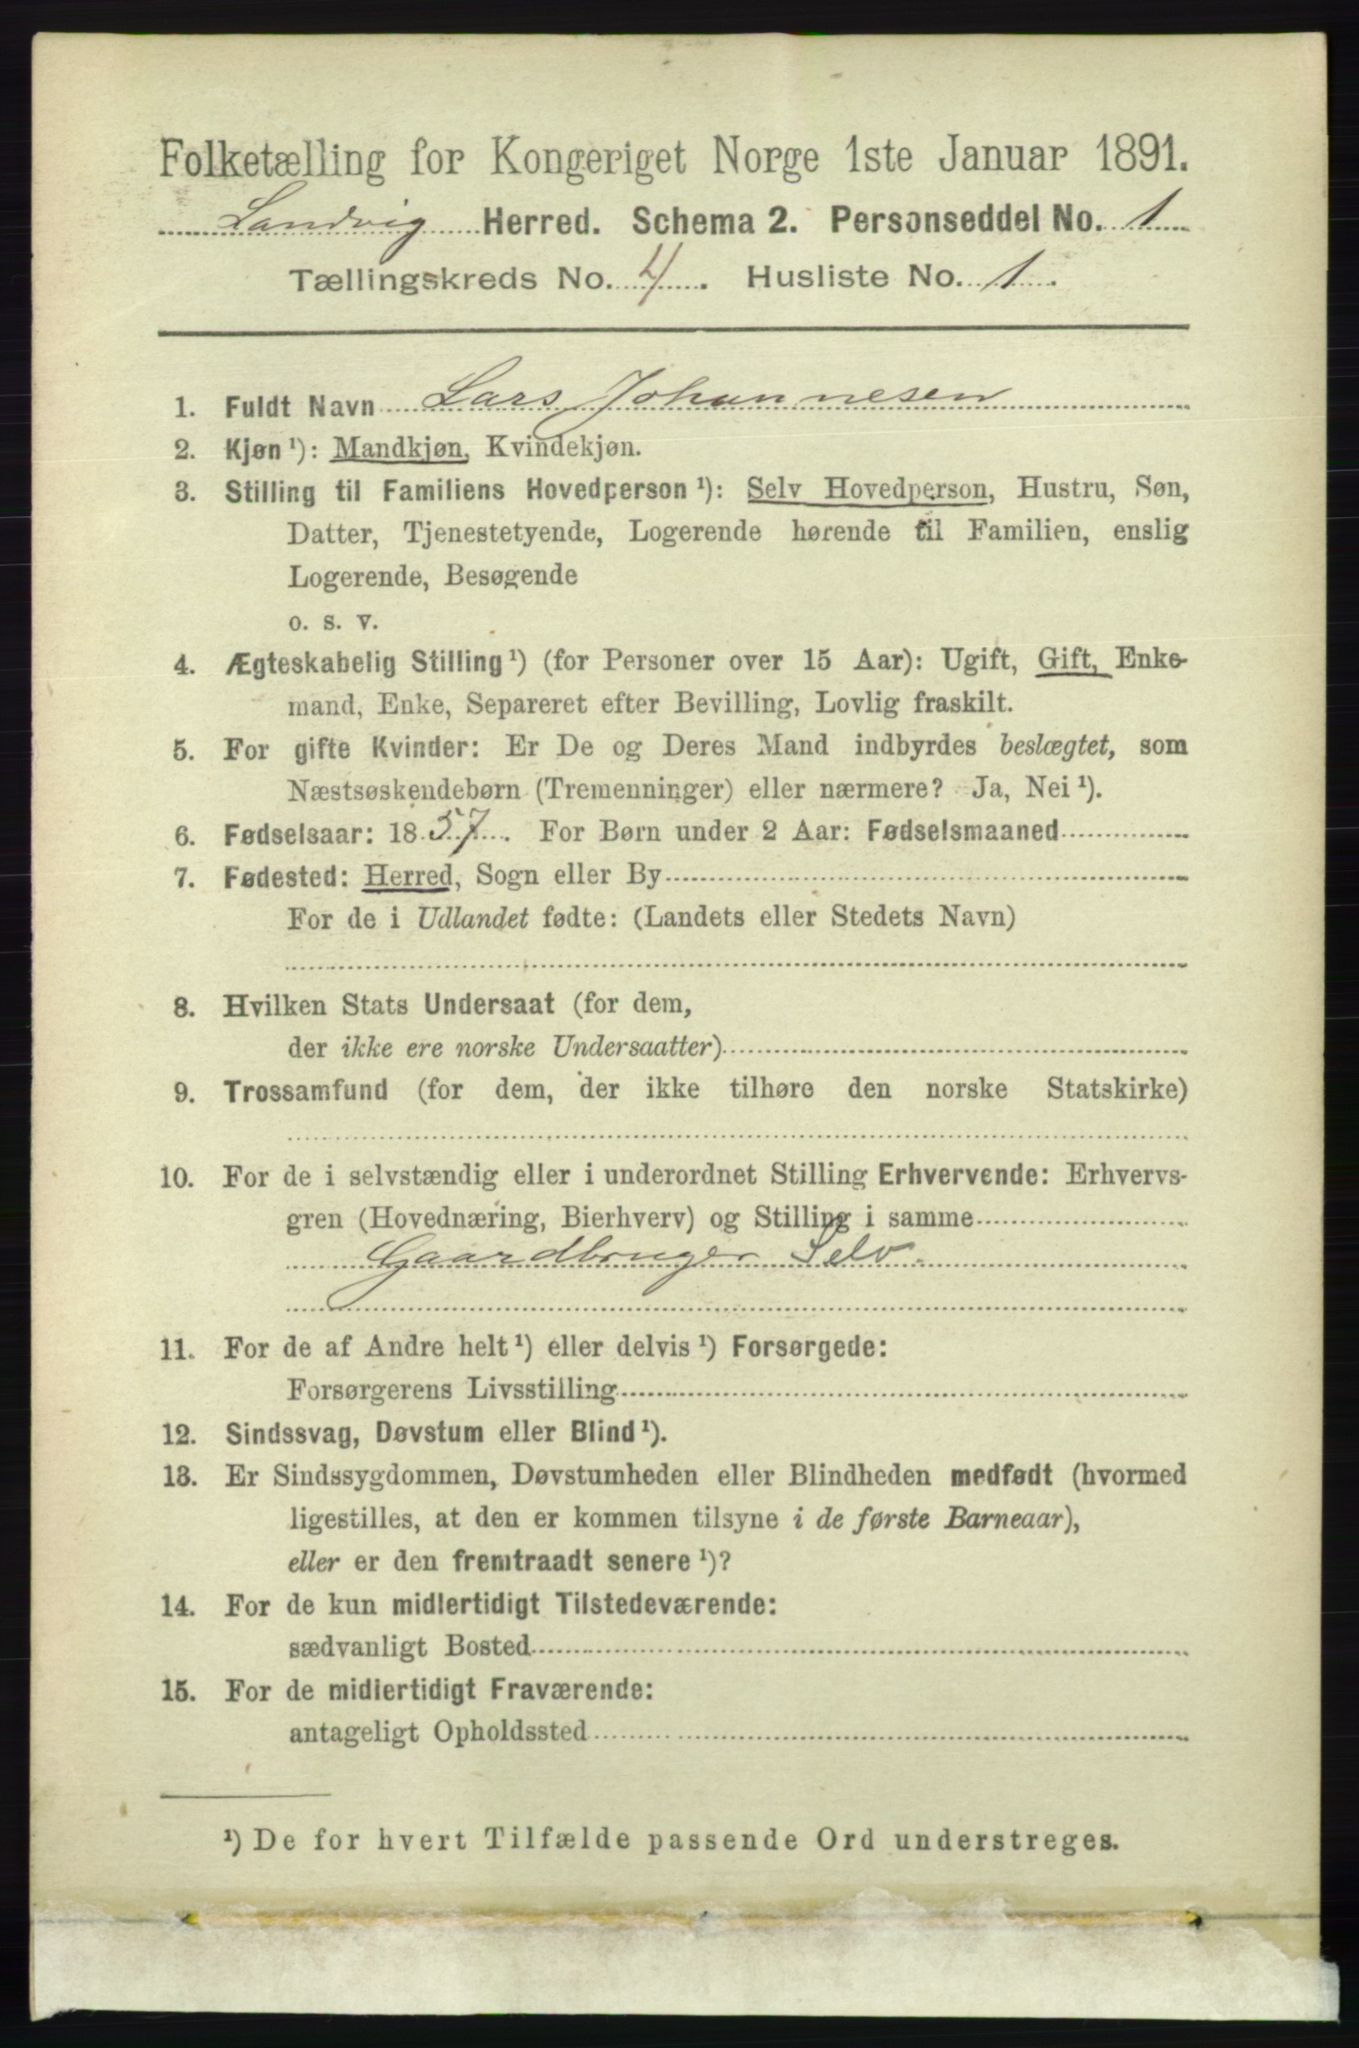 Folketælling for Kongeriget Norge 1ste Januar 1891.
Landvig Herred. Schema 2. Personseddel No. 1
Tællingskreds No. 4. Husliste No. 1.
1. Fuldt Navn Lars Johannesen
2. Kjøn¹): Mandkjøn, Kvindekjøn.
3. Stilling til Familiens Hovedperson¹): Selv Hovedperson, Hustru, Søn,
Datter, Tjenestetyende, Logerende hørende til Familien, enslig
Logerende, Besøgende
o. s. v.
4. Ægteskabelig Stilling¹) (for Personer over 15 Aar): Ugift, Gift, Enke-
mand, Enke, Separeret efter Bevilling, Lovlig fraskilt.
5. For gifte Kvinder: Er De og Deres Mand indbyrdes beslægtet, som
Næstsøskendebørn (Tremenninger) eller nærmere? Ja, Nei¹).
6. Fødselsaar: 1857. For Børn under 2 Aar: Fødselsmaaned
7. Fødested: Herred, Sogn eller By
For de i Udlandet fødte: (Landets eller Stedets Navn)
8. Hvilken Stats Undersaat (for dem,
der ikke ere norske Undersaatter)
9. Trossamfund (for dem, der ikke tilhøre den norske Statskirke)
10. For de i selvstændig eller i underordnet Stilling Erhvervende: Erhvervs-
gren (Hovednæring, Bierhverv) og Stilling i samme
Gaardbruger Selv
11. For de af Andre helt¹) eller delvis¹) Forsørgede:
Forsørgerens Livsstilling
12. Sindssvag, Døvstum eller Blind¹).
13. Er Sindssygdommen, Døvstumheden eller Blindheden medfødt (hvormed
ligestilles, at den er kommen tilsyne i de første Barneaar),
eller er den fremtraadt senere¹)?
14. For de kun midlertidigt Tilstedeværende:
sædvanligt Bosted
15. For de midlertidigt Fraværende:
antageligt Opholdssted
¹) De for hvert Tilfælde passende Ord understreges.